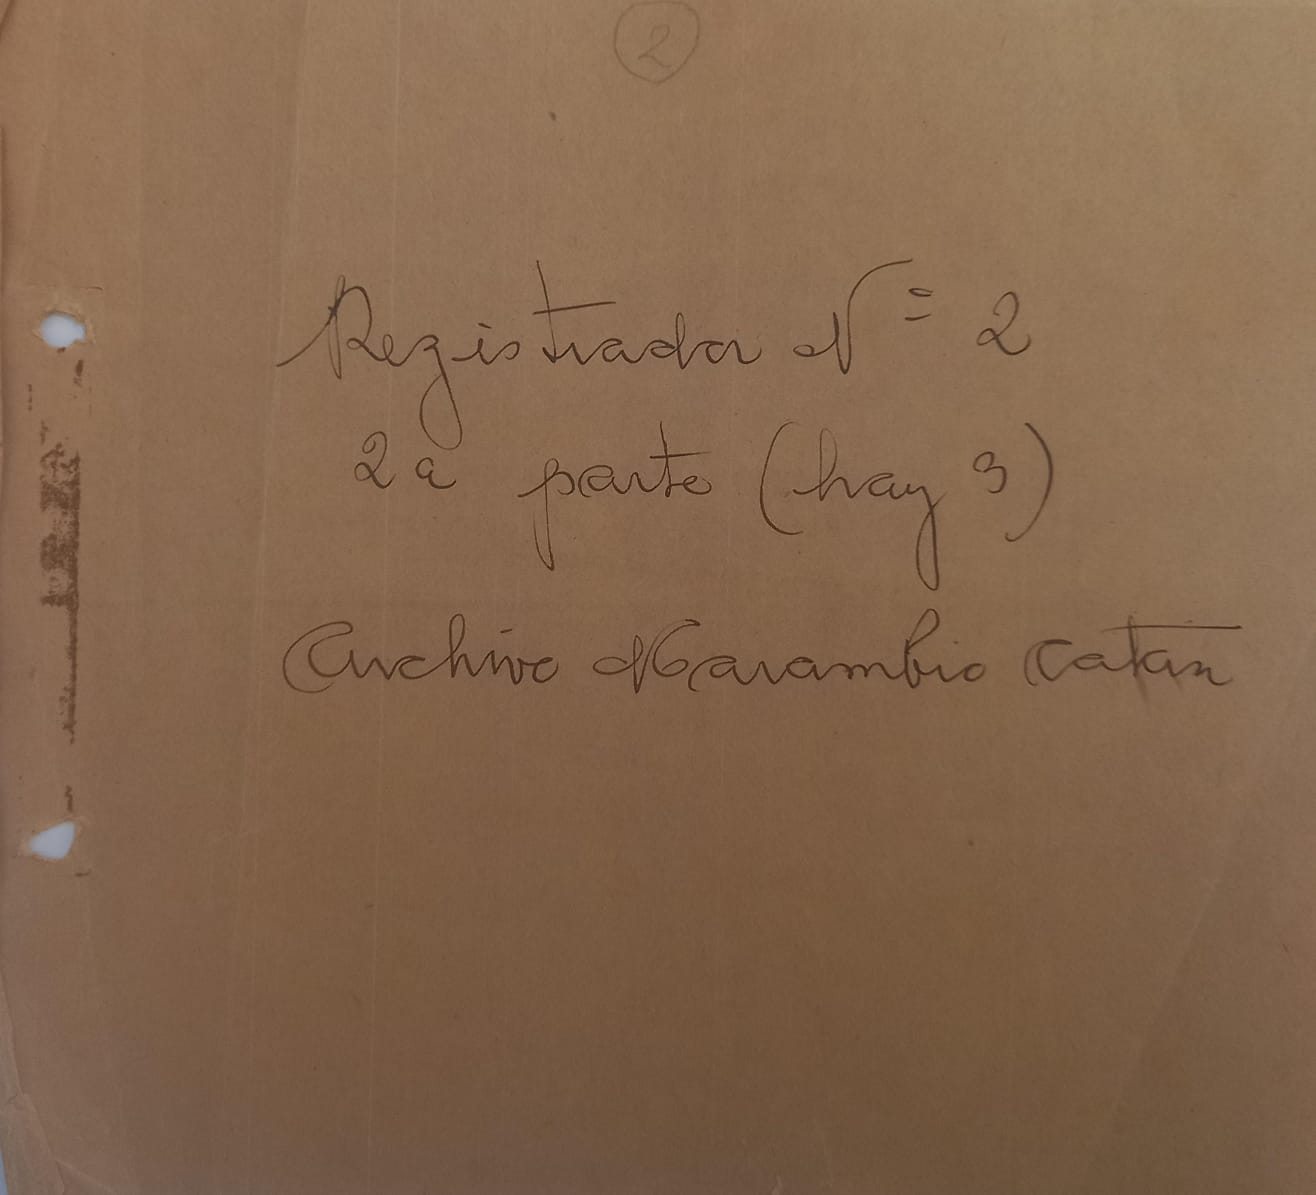 2
Registrador Nº 2
2a parte (hay 3)
Archivo Marambio Catan